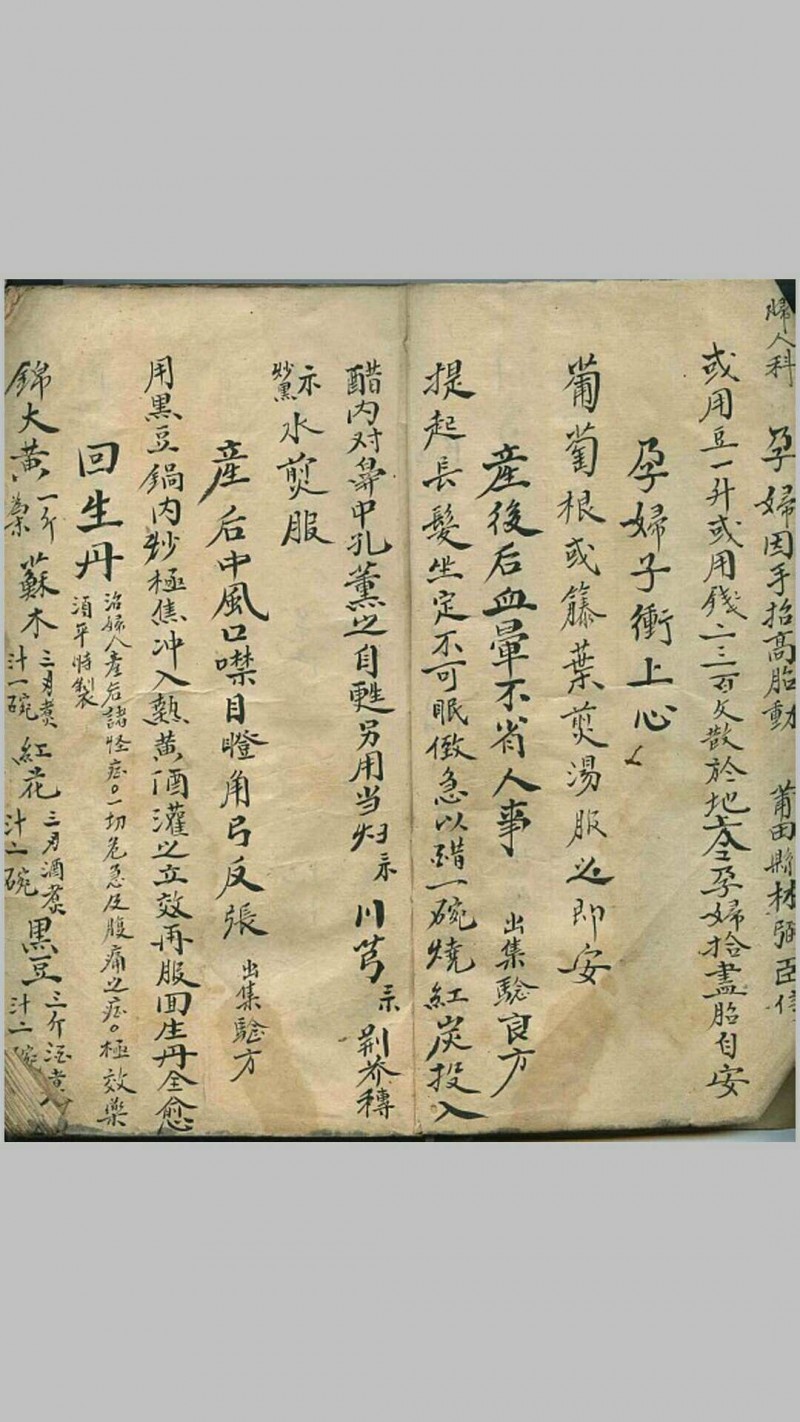 婦人科
孕婦因手抬高胎動 莆田縣林
或用豆一升或用錢二三百文散於地上令孕婦拾盡胎自安
孕婦子衝上心
葡萄根或籐葉煎湯服之即安
産後后血暈不省人事 出集驗良方
提起長髮坐定不可眠倒急以醋一碗燒紅炭投入
醋内对鼻中孔薰之自甦另用当归 川芎 荊芥穗
炒黑 水煎服
産后中風口噤目瞪角弓反張 出集驗方
用黒豆鍋内炒極焦冲入熱黄酒灌之立效再服回生丹全愈
回生丹 治婦人産后諸怪症。一切危急及腹痛之症。極效藥
須平時製
錦大黄 一斤 蘇木 三刃煮 汁一碗 紅花 三刃酒煮 汁二碗 黒豆 三斤 汁二碗